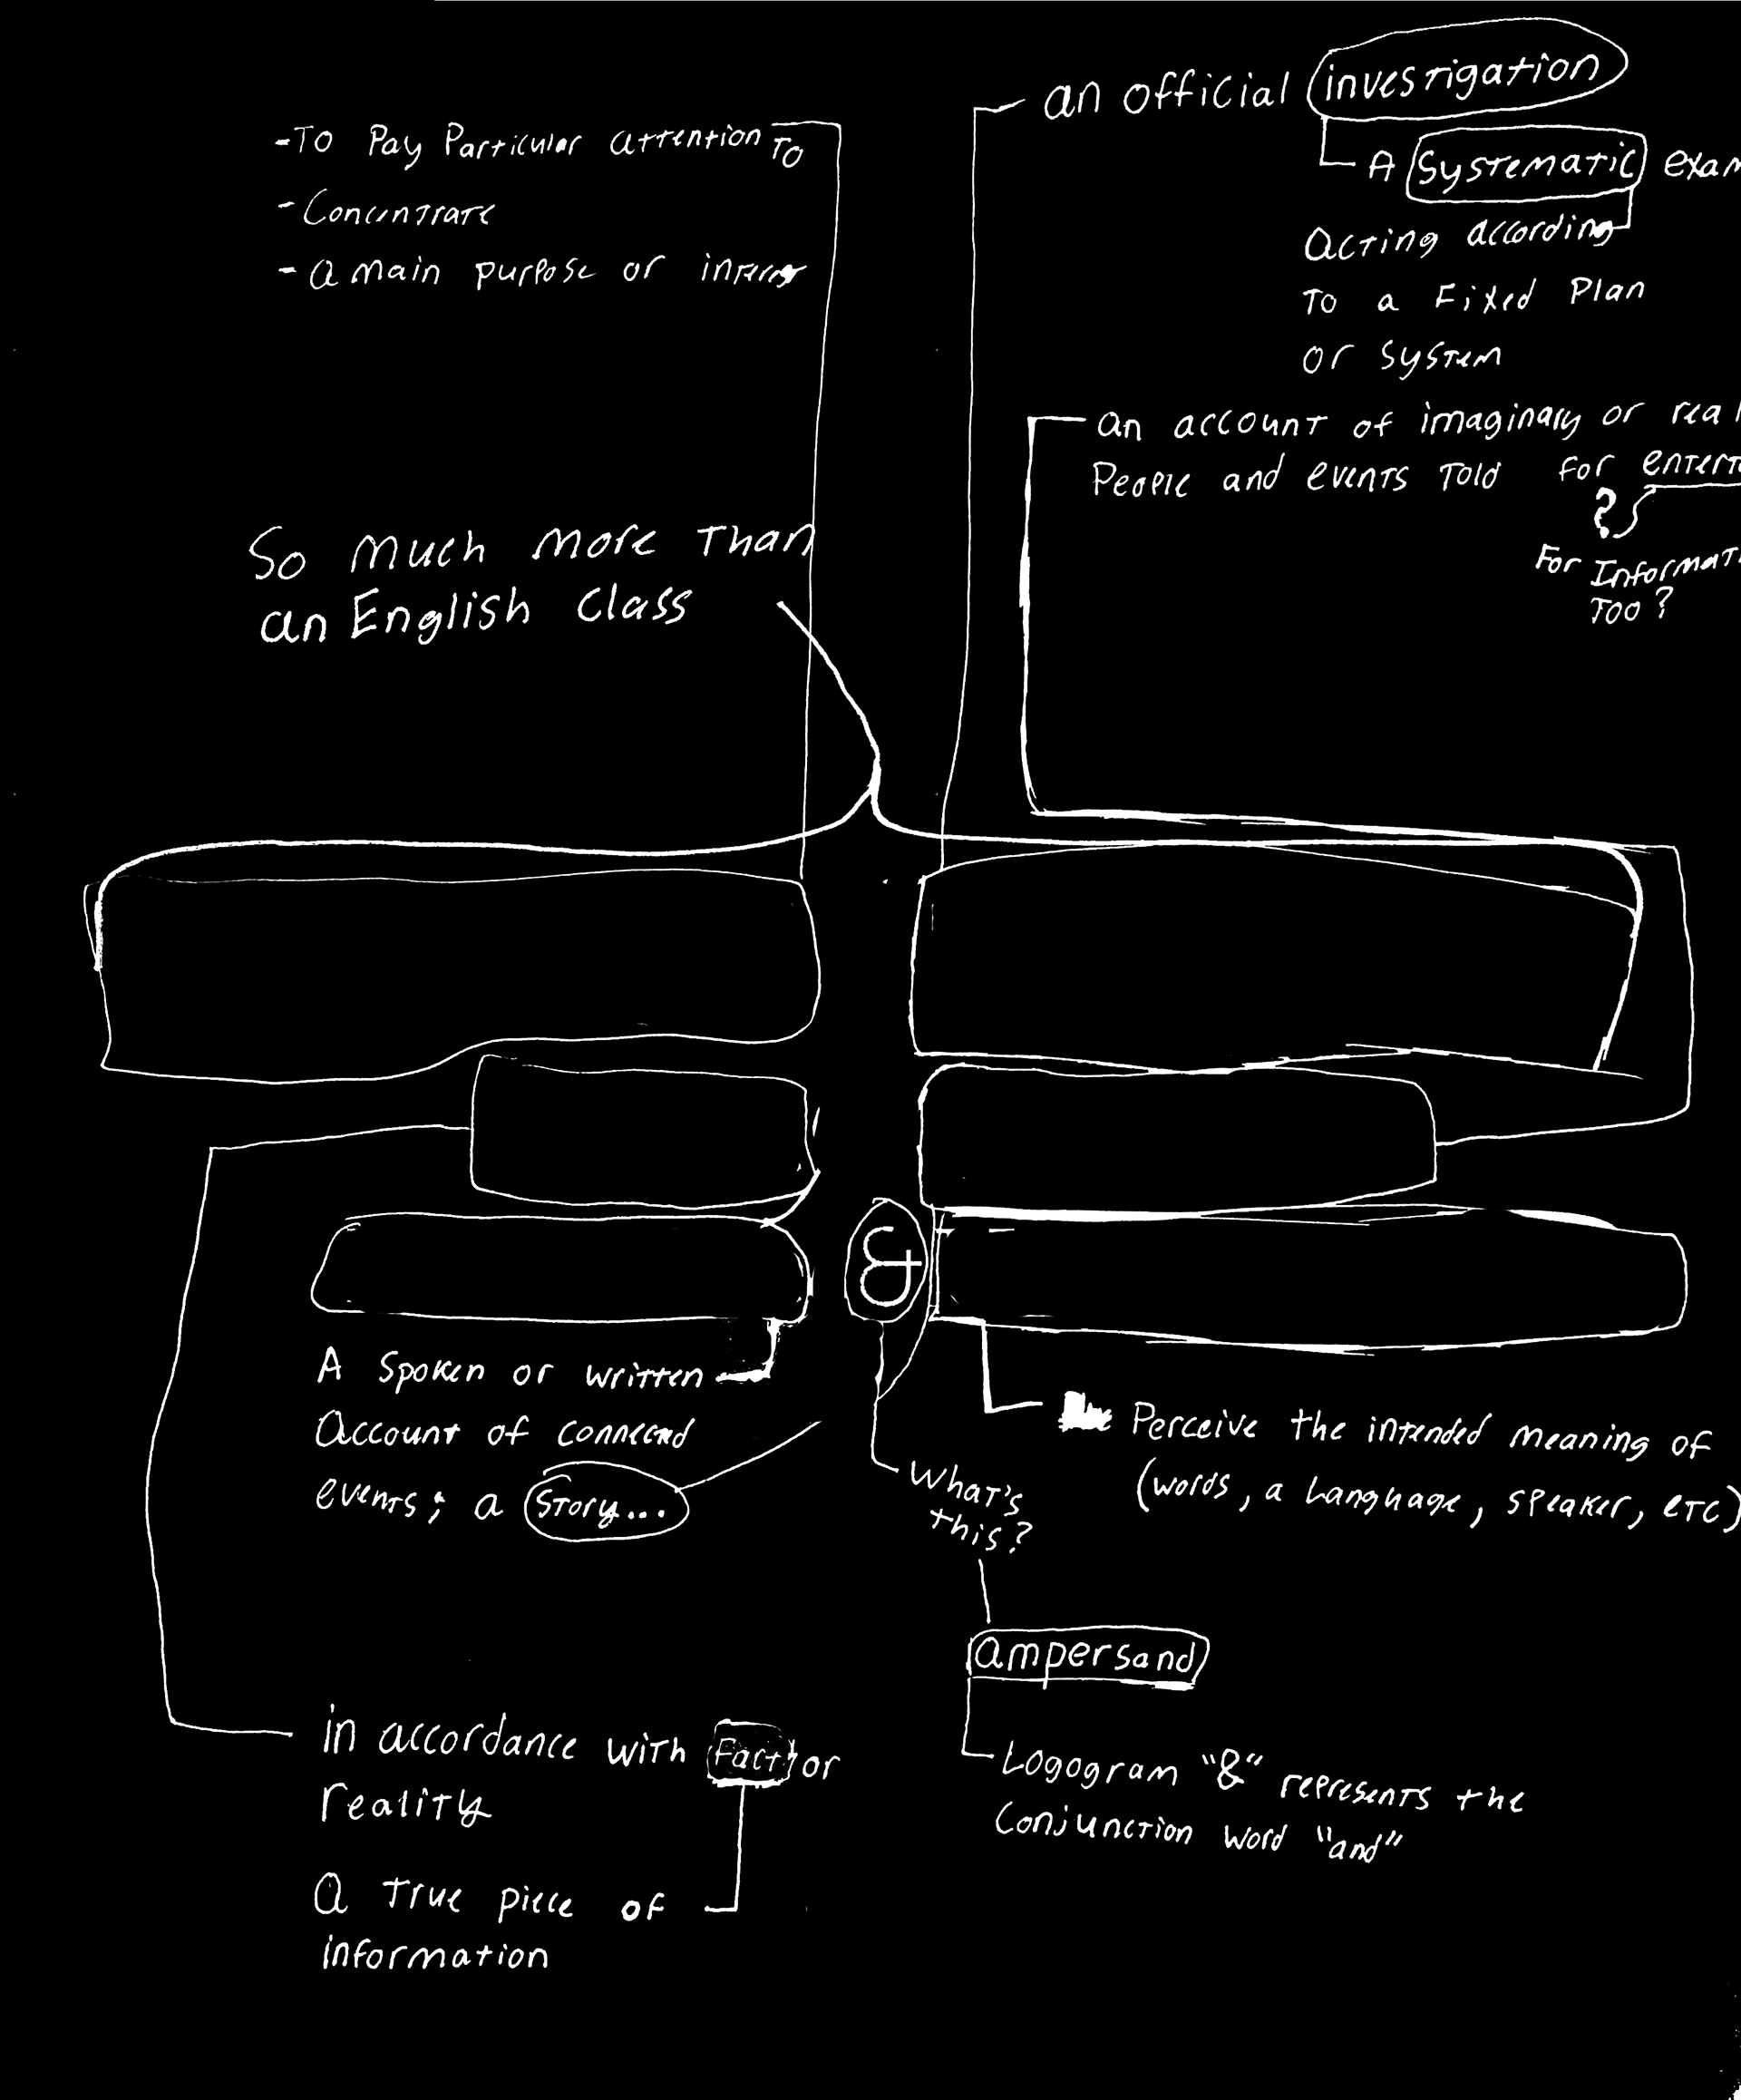 -To Pay Particular attention To
- Concentrate
- a main purpose or interest
an official investigation
A Systematic exam
acting according
To a Fixed Plan
or System
an account of imaginary or real
People and events Told for entert
?
For Informat
Too?
So much more Than
an English Class
&
A Spoken or written
account of connected
events; a Story...
What's
this?
Perceive the intended meaning of
(words, a language, speaker, etc)
ampersand
Logogram "&" represents the
Conjunction word "and"
in accordance with Fact or
reality
a True piece of
information